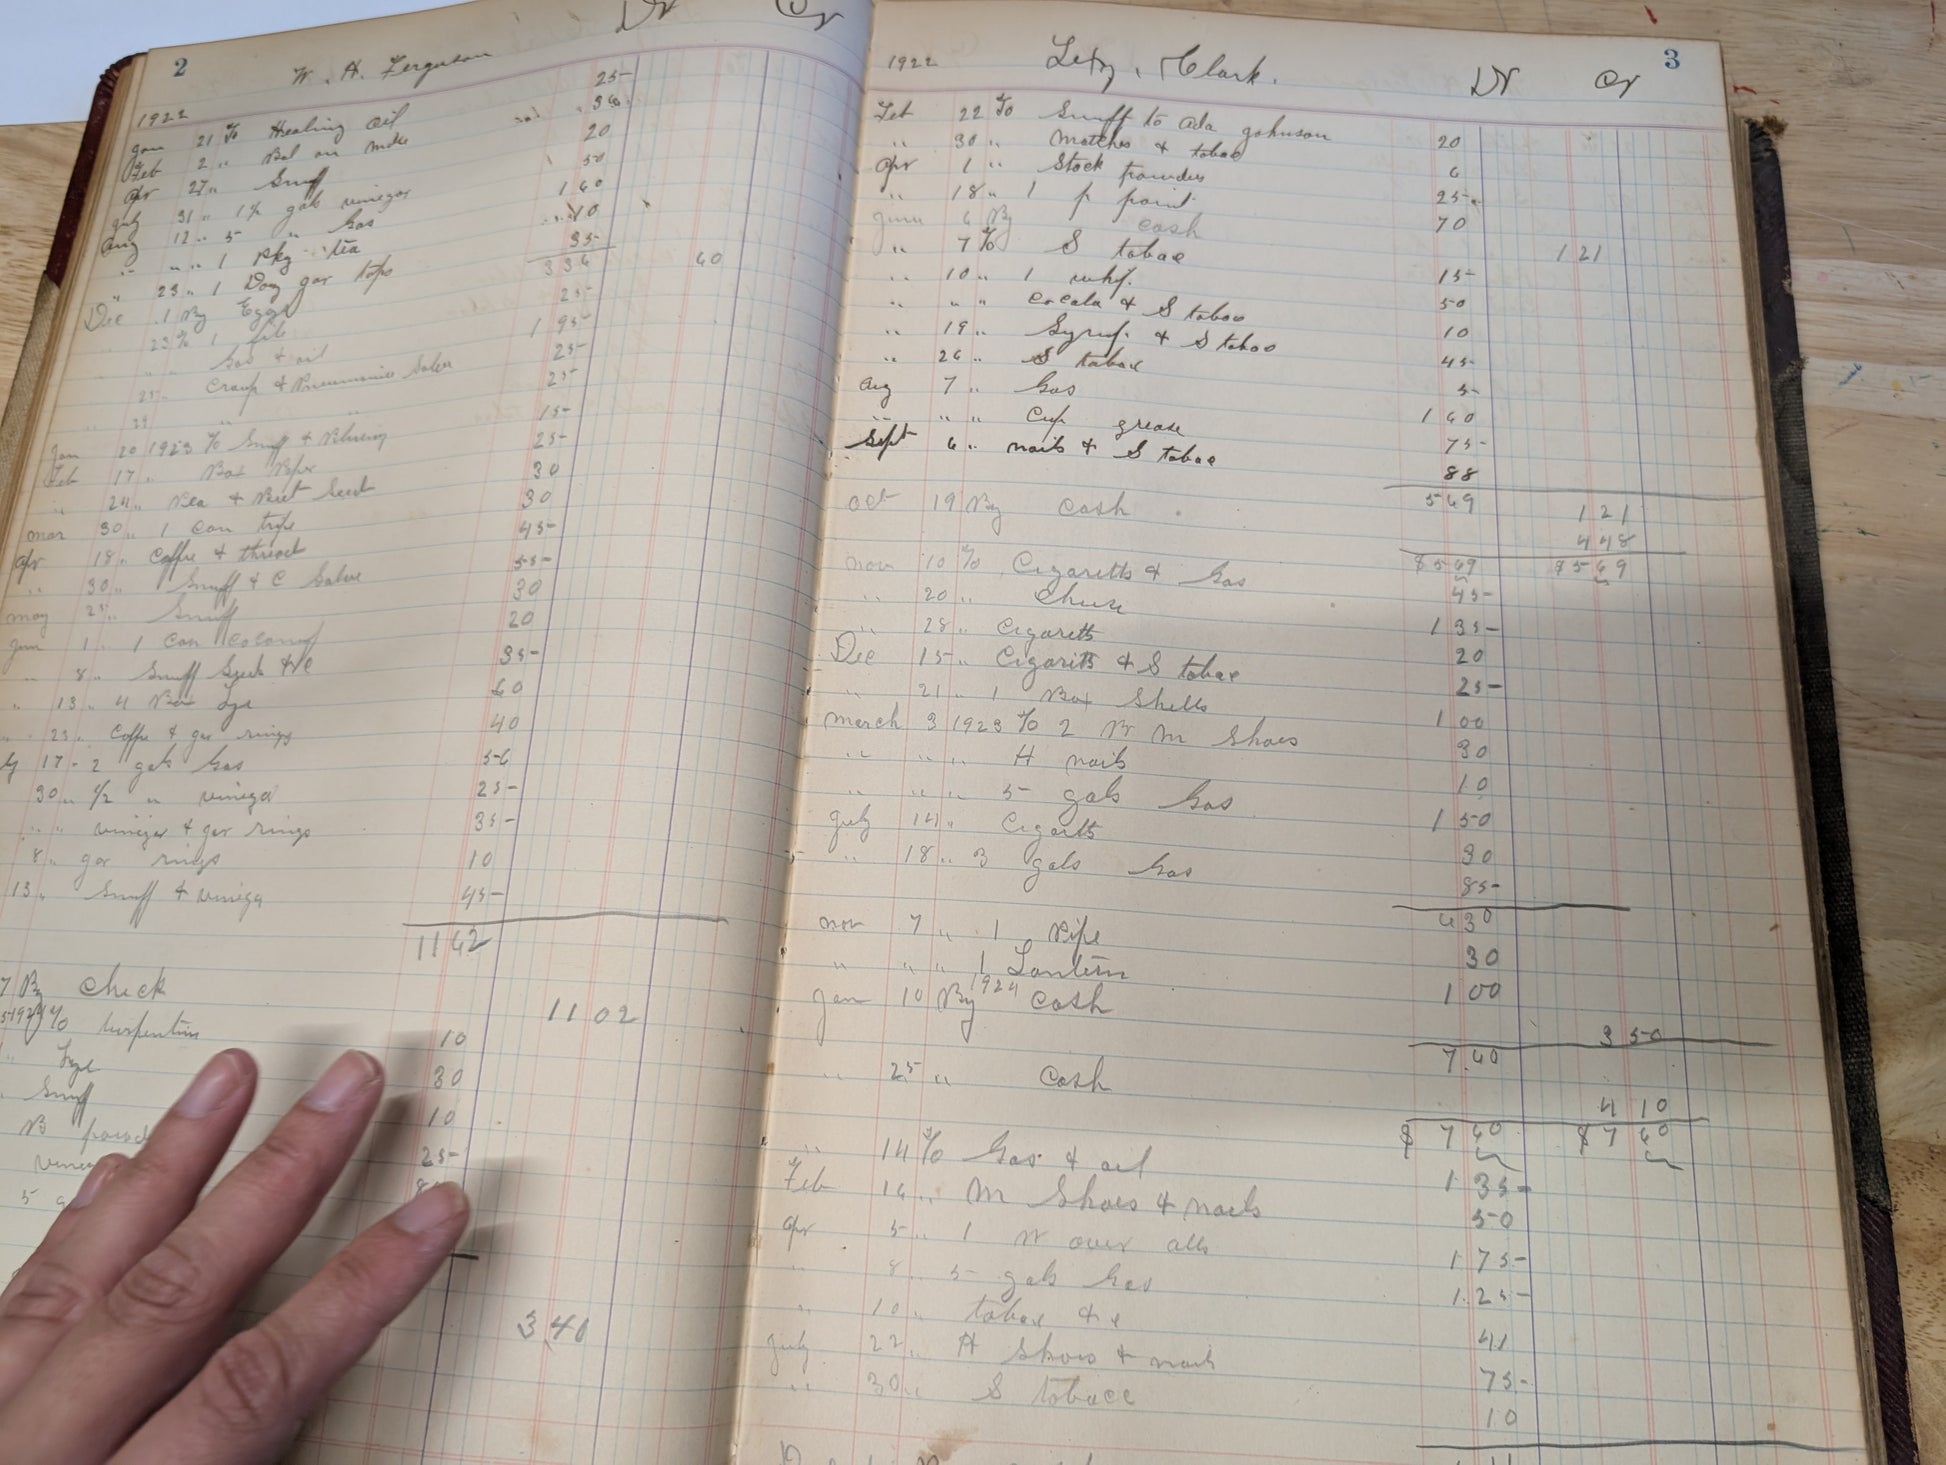 2
W. H. Ferguson Dr Cr
1922 25-
Jan 21 To Healing oil 36
Feb 2 " Bal on 20
Apr 27 " Snuff 50
July 31 " 1½ gals vinegar 1 60
Aug 12 " 5 " Gas 10
" " " 1 pkg tea 35-
" 23 " 1 Doz jar tops 3 36
Dec 1 By Eggs 25- 60
23 To 1 file 1 95-
" " Gas & oil 25-
25 " Croup & Pneumonia Salve 25-
" 29 " " 15-
Jan 20 1923 To Snuff & Bluing 25-
Feb 17 " Box 30
" 24 " Pea & Beet Seed 30
Mar 30 " 1 can 45-
Apr 18 " Coffee & thread 55-
" 30 " Snuff & C Salve 30
May 25 " Snuff 20
June 1 " 1 Can 35-
" 8 " Snuff Seed &c 60
" 13 " 4 Box Lye 40
" 23 " Coffee & jar rings 56
17 " 2 gals Gas 25-
30 " 1/2 " vinegar 35-
" " vinegar & jar rings 10
8 " jar rings 45-
13 " Snuff & vinegar
11 62
7 By check 11 02
To turpentine 10
" Lye 30
" Snuff 10
B 25-
5
3 40
3
1922 Clark. Dr Cr
Feb 22 To Snuff to Ada Johnson 20
" 30 " Matches & tobac 6
Apr 1 " Stock powders 25-
" 18 " 1 p paint 70
June 6 By cash 1 21
" 7 To S tobac 15-
" 10 " 1 whip 50
" " " Cocala & S tobac 10
" 19 " Syrup & S tobac 45-
" 26 " S tobac 5-
Aug 7 " Gas 1 60
" " " Cup grease 75-
Sept 6 " nails & S tobac 88
5 69 1 21
Oct 19 By cash 4 48
$5 69 $5 69
Nov 10 To Cigaretts & Gas 45-
" 20 " Cheese 1 35-
" 28 " Cigaretts 20
Dec 15 " Cigaritts & S tobac 25-
" 21 " 1 Box Shells 1 00
March 3 1923 To 2 Pr M Shoes 30
" " " H nails 10
" " " 5 gals Gas 1 50
July 14 " Cigaretts 30
" 18 " 3 gals Gas 85-
6 30
Nov 7 " 1 Pipe 30
" " " 1 Lantern 1 00
Jan 10 By 1924 cash 3 50
7 60
" 25 " Cash 4 10
$ 7 60 $ 7 60
" 14 To Gas & oil 1 35-
Feb 16 " M Shoes & nails 50
Apr 5 " 1 pr over alls 1 75-
" 8 " 5 gals Gas 1 25-
" 10 " tobac & c 41
July 22 " H Shoes & nails 75-
" 30 " S tobacc 10